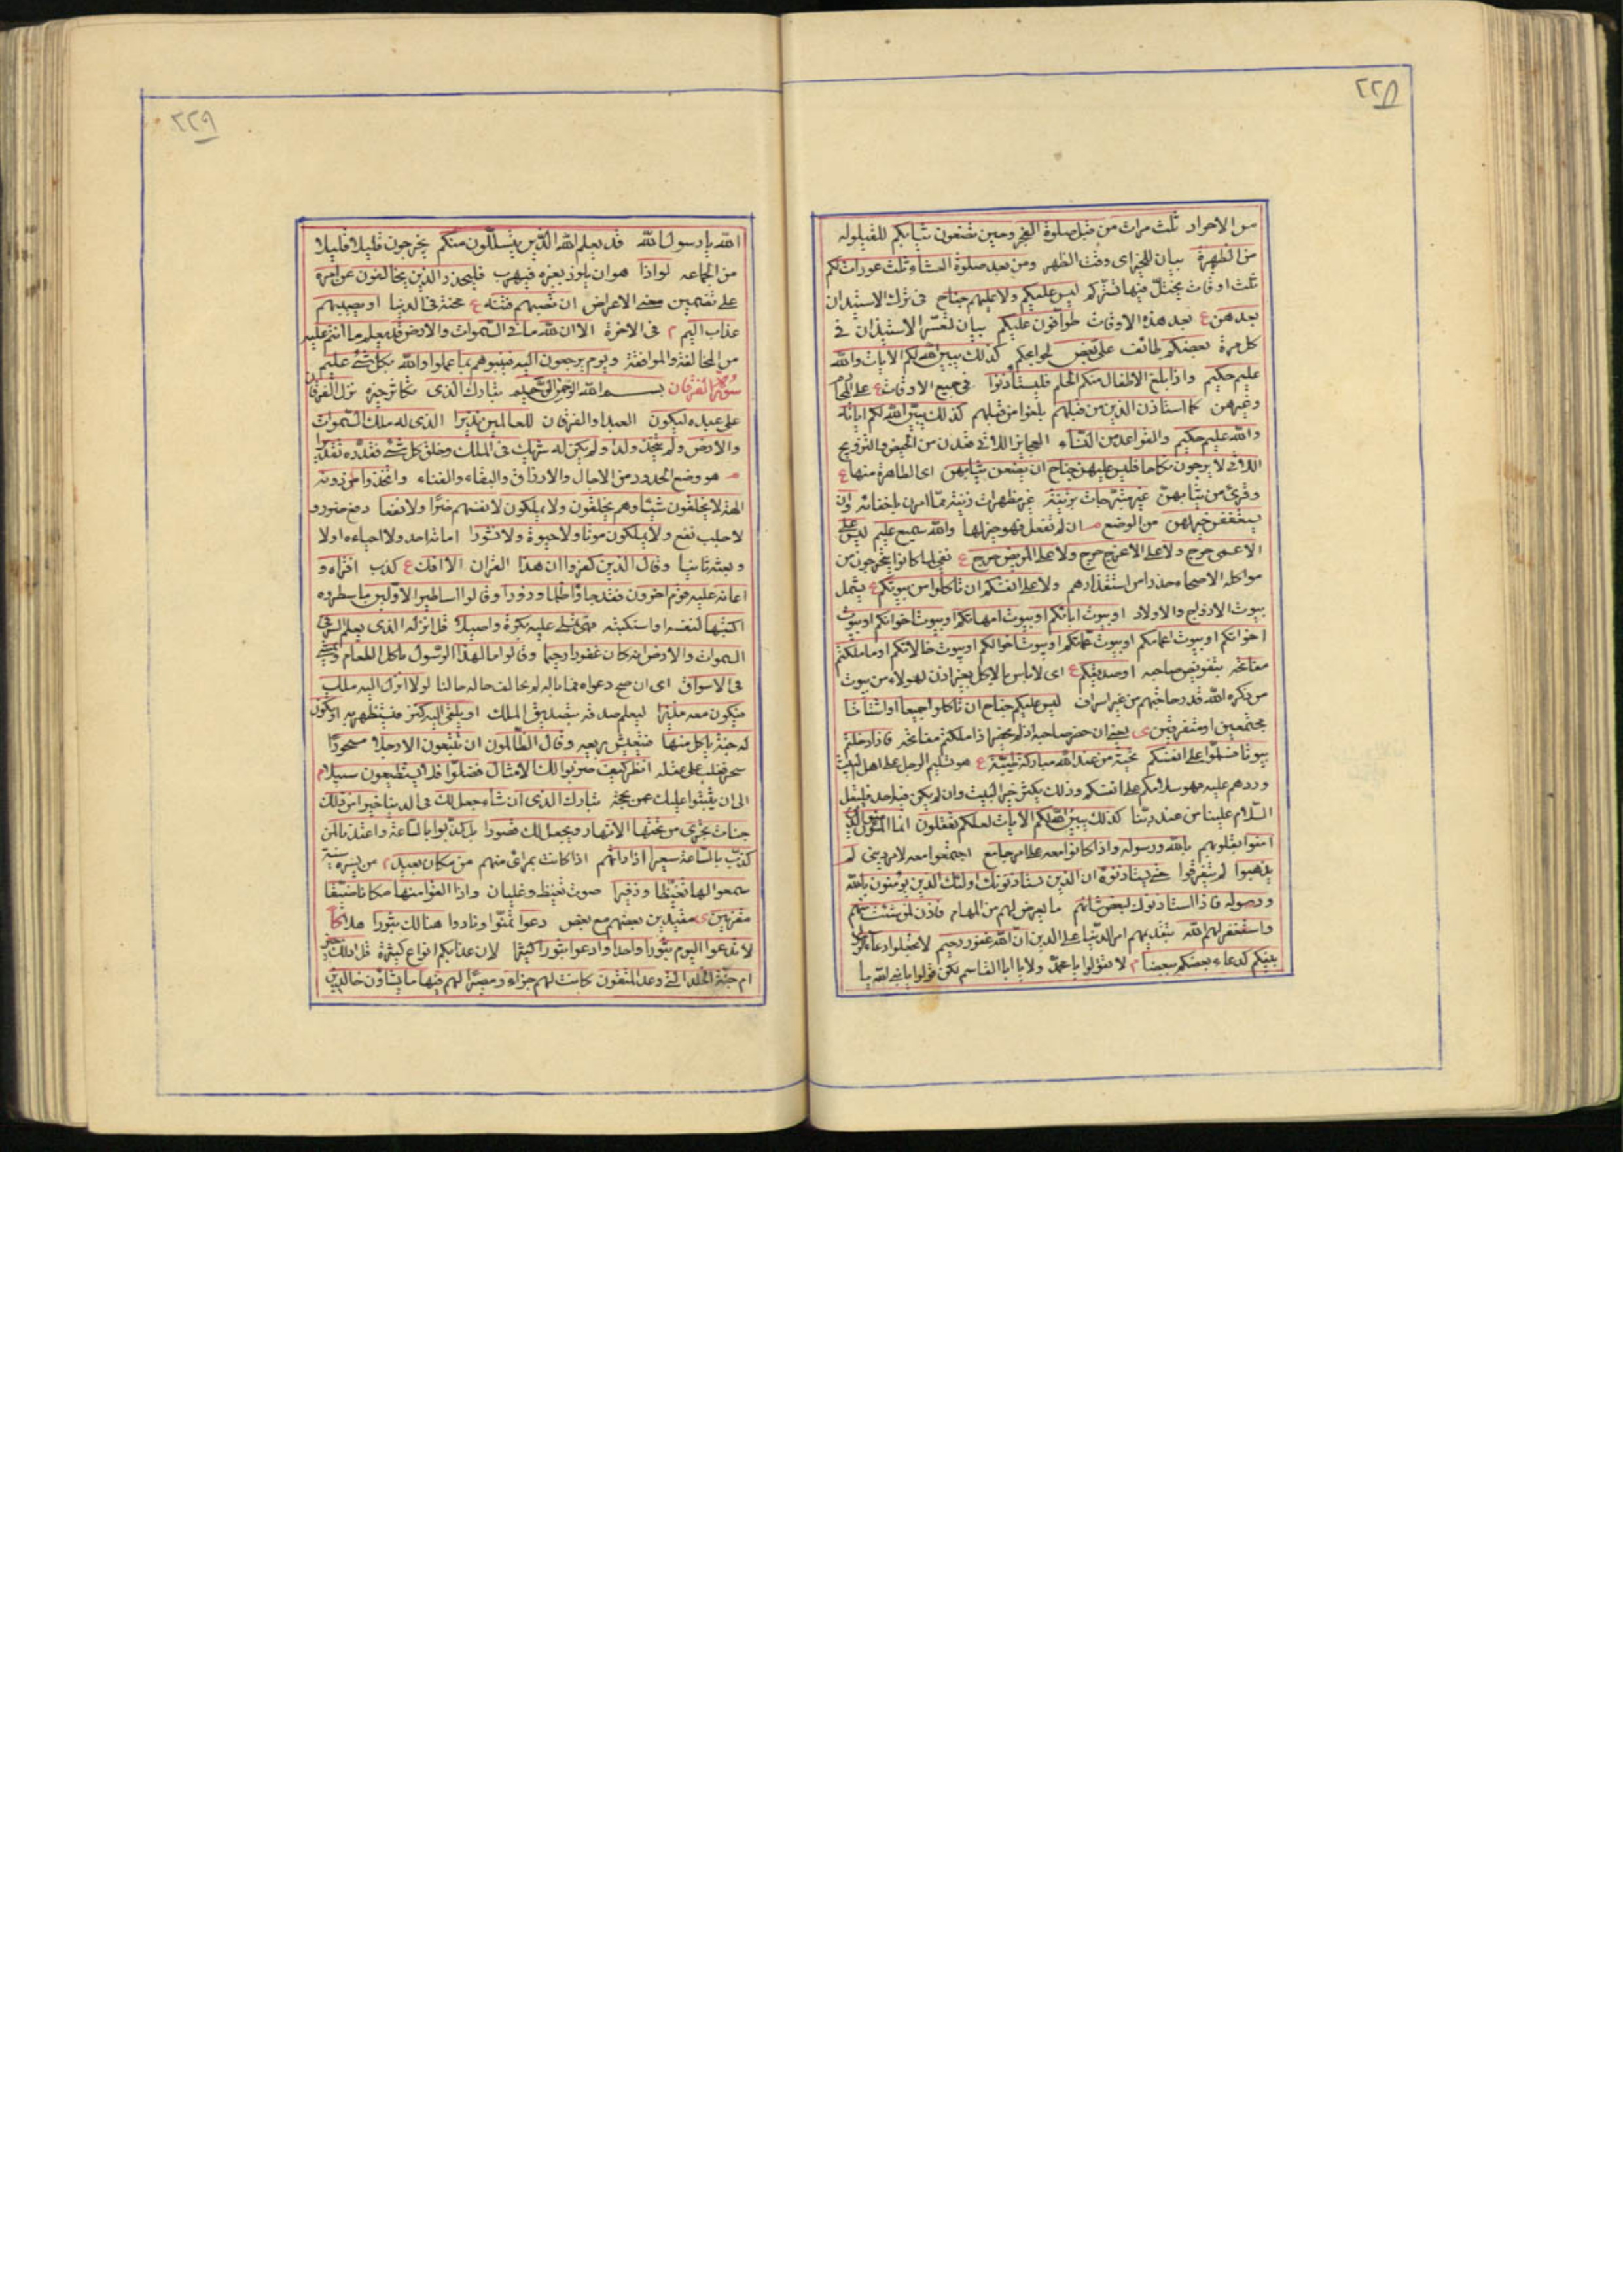 ٢٢٨
من الاحرار ثلث مرات من قبل صلوة الفجر وحين تضعون ثيابكم للقيلوله
من الظهيرة بيان للحين اى وقت الظهر ومن بعد صلوة العشاء ثلث عورات لكم
ثلث اوقات يختل فيها تستركم ليس عليكم ولا عليهم جناح فى ترك الاستيذان
بعدهن ع بعد هذه الاوقات طوافون عليكم بيان لعسر الاستيذان فى
كل مرة بعضكم طائف على بعض لحوائجكم كذلك يبين الله لكم الايات والله
عليم حكيم واذا بلغ الاطفال منكم الحلم فليستأذنوا فى جميع الاوقات ع على المحارم
وغيرهن كما استاذن الذين من قبلهم بلغوا من قبلهم كذلك يبين الله لكم اياته
والله عليم حكيم والقواعد من النساء العجايز اللاتى قعدن من الحيض والتزويج
اللاتى لا يرجون نكاحا فليس عليهن جناح ان يضعن ثيابهن اى الظاهرة منها ع
وقرئ من ثيابهن غير متبرجات بزينة غير مظهرات زينة مما امرن باخفائه وان
يستعففن خير لهن من الوضع ان لم تفعل فهو خير لها والله سميع عليم ليس على
الاعمى حرج ولا على الاعرج حرج ولا على المريض حرج ع نفى لما كانوا يتحرجون من
مواكله الاصحاء حذرا من استقذارهم ولا على انفسكم ان تاكلوا من بيوتكم ع يشمل
بيوت الازواج والاولاد او بيوت ابائكم او بيوت امهاتكم او بيوت اخوانكم او بيوت
اخواتكم او بيوت اعمامكم او بيوت عماتكم او بيوت اخوالكم او بيوت خالاتكم او ما ملكتم
مفاتحه بتفويض صاحبه او صديقكم ع اى لا باس بالاكل بغير اذن لهولاء من بيوت
من ذكره الله قدر حاجتهم من غير اسراف ليس عليكم جناح ان تاكلوا جميعا او اشتاتا
مجتمعين او متفرقين ى يعنى ان حضر صاحبه او لم يحضر اذا ملكتم مفاتحه فاذا دخلتم
بيوتا فسلموا على انفسكم تحية من عند الله مباركة طيبة ع هو تسليم الرجل على اهل البيت
وردهم عليه فهو سلامكم على انفسكم وذلك يكثر خير البيت وان لم يكن فيه احد فليقل
السلام علينا من عند ربنا كذلك يبين الله لكم الايات لعلكم تعقلون انما المؤمنون الذين
امنوا بقلوبهم بالله ورسوله واذا كانوا معه على امر جامع اجتمعوا معه لامر دينى لم
يذهبوا لم يتفرقوا حتى يستاذنوه ان الذين يستاذنونك اولئك الذين يومنون بالله
ورسوله فاذا استاذنوك لبعض شانهم ما يعرض لهم من المهام فاذن لمن شئت منهم
واستغفر لهم الله بتقديمهم امر الدنيا على الدين ان الله غفور رحيم لا تجعلوا دعاء الرسول
بينكم كدعاء بعضكم بعضا م لا تقولوا يا محمد ولا يا ابا القاسم لكن قولوا يا نبى الله يا
٢٢٩
الله يا رسول الله قد يعلم الله الذين يتسللون منكم يخرجون قليلا قليلا
من الجماعه لواذا هو ان يلوذ بغيره فيهرب فليحذر الذين يخالفون عن امره
على تضمين معنى الاعراض ان تصيبهم فتنه ع محنة فى الدنيا او يصيبهم
عذاب اليم م فى الاخرة الا ان لله ما فى السموات والارض قد يعلم ما انتم عليه
من المخالفة والموافقة ويوم يرجعون اليه فينبئهم بما عملوا والله بكل شئ عليم
سورة الفرقان بسم الله الرحمن الرحيم تبارك الذى تكاثر خيره نزل الفرقان
على عبده ليكون العبد او الفرقان للعالمين نذيرا الذى له ملك السموات
والارض ولم يتخذ ولدا ولم يكن له شريك فى الملك وخلق كل شئ فقدره تقديرا
هو وضع الحدود من الاجال والارزاق والبقاء والفناء واتخذوا من دونه
الهة لا يخلقون شيئا وهم يخلقون ولا يملكون لانفسهم ضرا ولا نفعا دفع ضر و
لا جلب نفع ولا يملكون موتا ولا حيوة ولا نشورا اماتة احد ولا احياءه اولا
وبعثه ثانيا وقال الذين كفروا ان هذا القران الا افك ع كذب افتراه و
اعانه عليه قوم اخرون فقد جاؤا ظلما وزورا وقالوا اساطير الاولين ما سطروه
اكتتبها لنفسه او استكتبه فهى تملى عليه بكرة واصيلا قل انزله الذى يعلم السر فى
السموات والارض انه كان غفورا رحيما وقالوا ما لهذا الرسول ياكل الطعام ويمشى
فى الاسواق اى ان صح دعواه فما باله لم يخالف حاله حالنا لولا انزل اليه ملك
فيكون معه نذيرا ليعلم صدقه بتصديق الملك او يلقى اليه كنز فيستظهر به او تكون
له جنة ياكل منها فيتعيش بريعه وقال الظالمون ان تتبعون الا رجلا مسحورا
سحر فغلب على عقله انظر كيف ضربوا لك الامثال فضلوا فلا يستطيعون سبيلا م
الى ان يثبتوا عليك عمن بحجة تبارك الذى ان شاء جعل لك فى الدنيا خيرا من ذلك
جنات تجرى من تحتها الانهار ويجعل لك قصورا بل كذبوا بالساعة واعتدنا لمن
كذب بالساعة سعيرا اذا راتهم اذا كانت بمراى منهم من مكان بعيد من مسيرة سنة
سمعوا لها تغيظا وزفيرا صوت تغيظ وغليان واذا القوا منها مكانا ضيقا
مقرنين ى مقيدين بعضهم مع بعض دعوا تمنوا ونادوا هنالك ثبورا هلاكا
لا تدعوا اليوم ثبورا واحدا وادعوا ثبورا كثيرا لان عذابكم انواع كثيرة قل اذلك خير
ام جنة الخلد التى وعد المتقون كانت لهم جزاء ومصيرا لهم فيها ما يشاؤن خالدين